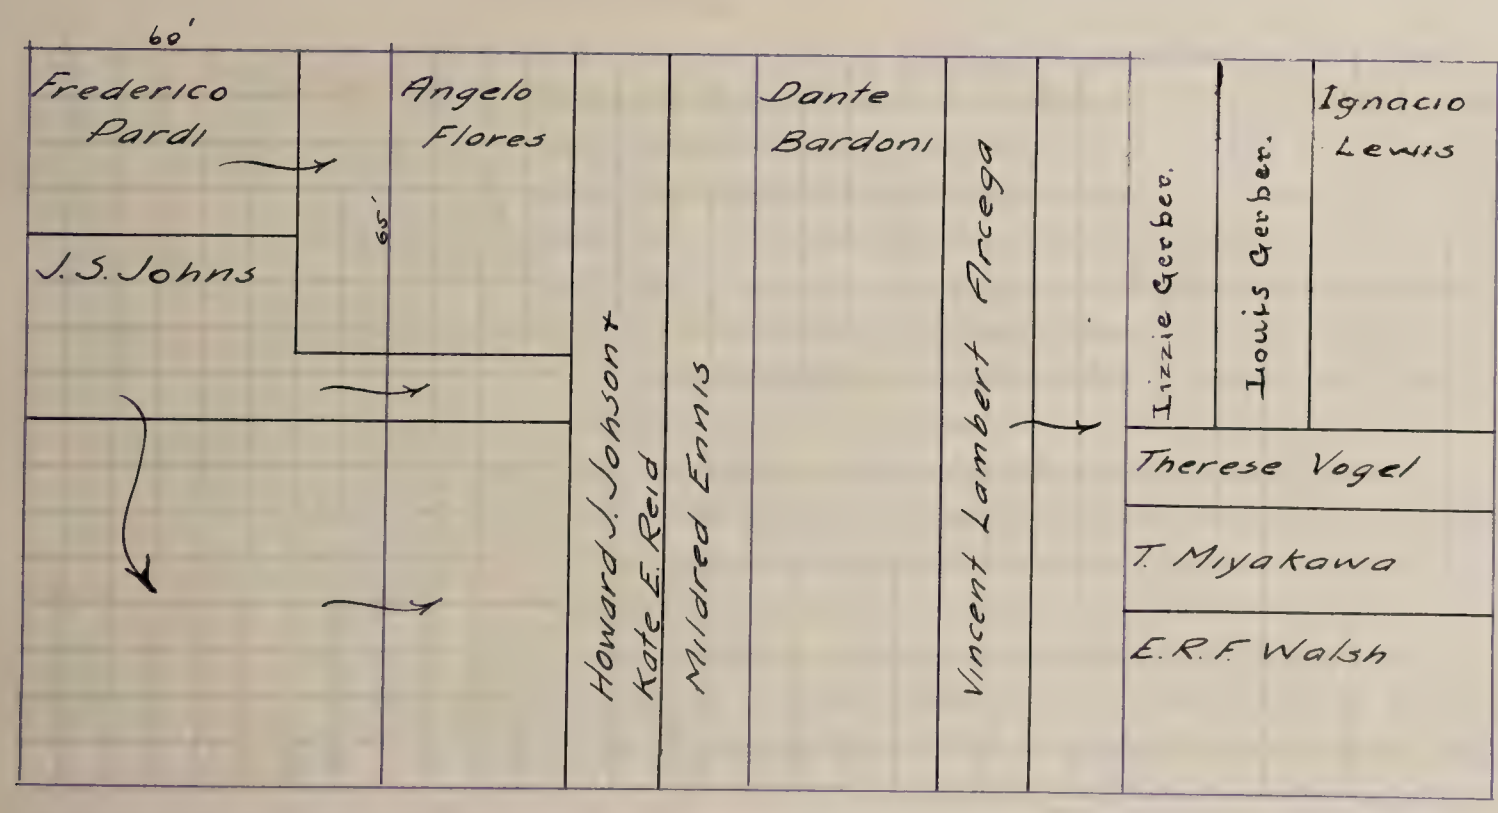 60'
Frederico
Pardi
J.S. Johns
Angelo
Flores
65'
Howard J. Johnson +
Kate E. Reid
Mildred Ennis
Dante
Bardoni
Vincent Lambert Arcega
Lizzie Gerber.
Louis Gerber.
Ignacio
Lewis
Therese Vogel
T. Miyakawa
E.R.F. Walsh